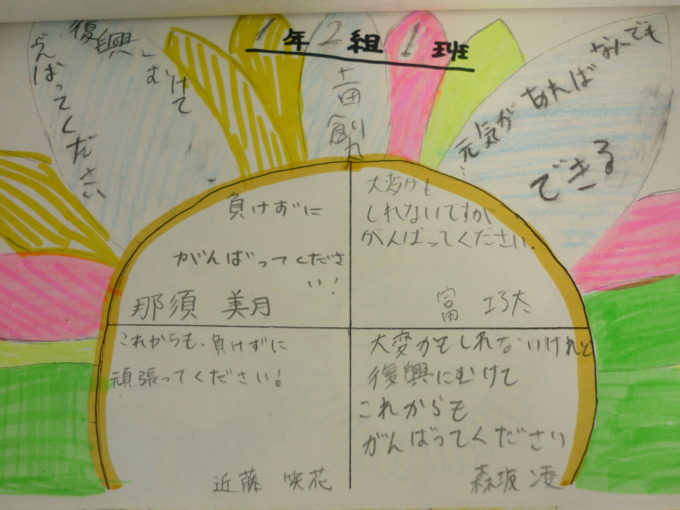 1年2組1班
復興にむけて
がんばってください
元気があればなんでも
できる!
負けずに
がんばってください!
那須 美月
大変かも
しれないですが
がんばってください。
富 巧太
これからも、負けずに
頑張ってください!
近藤 咲花
大変かもしれないけれど
復興にむけて
これからも
がんばってください
森坂 凌